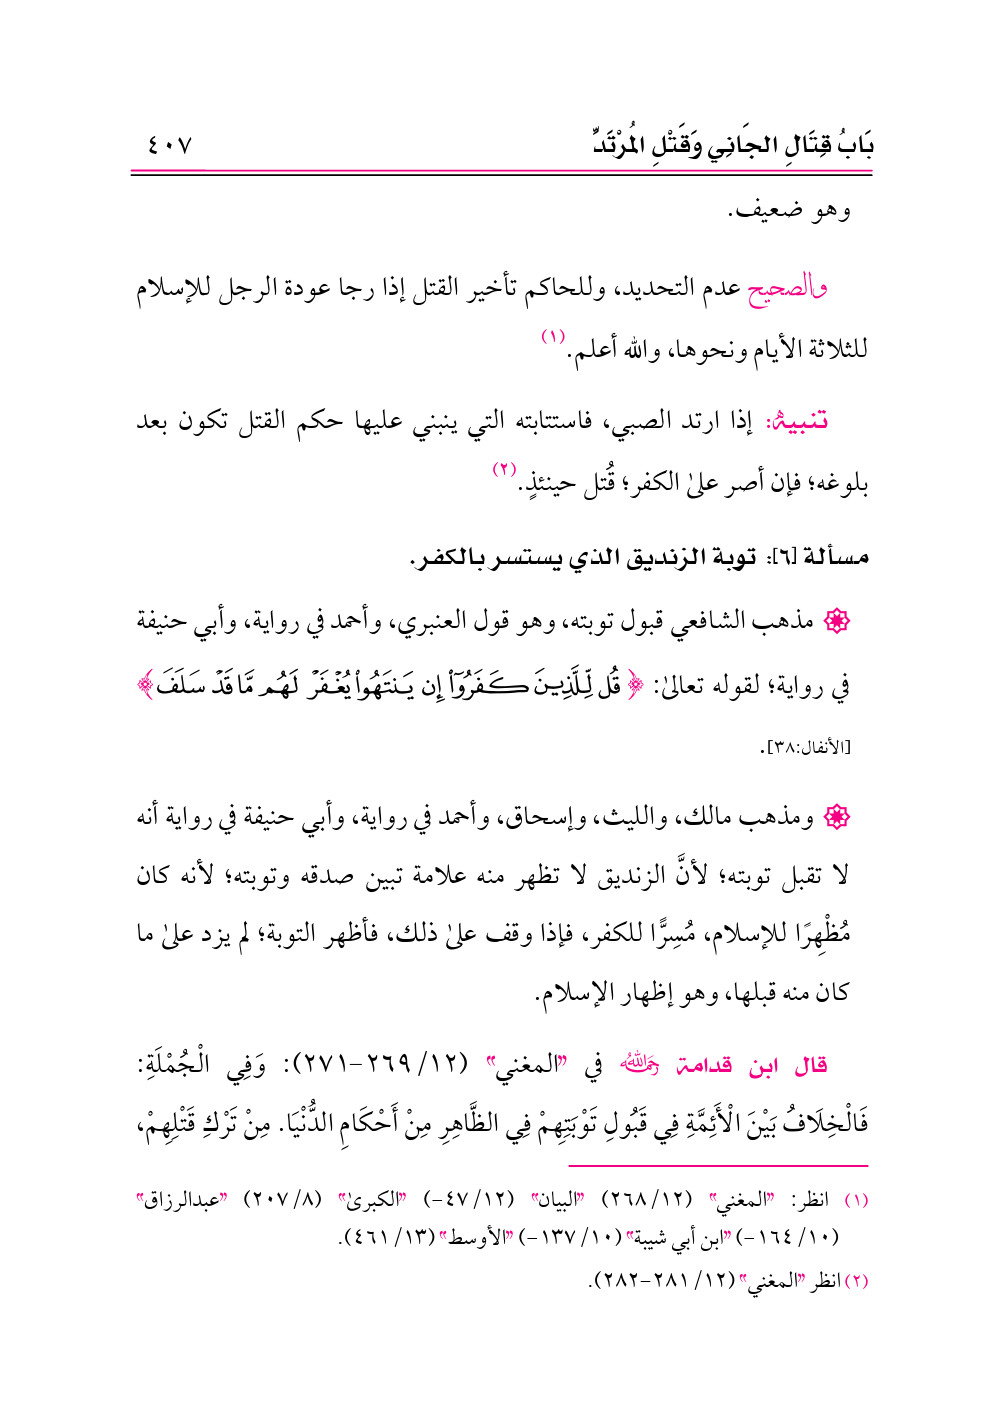 بَابُ قِتَالِ الجَانِي وَقَتْلِ المُرْتَدِّ ٤٠٧
وهو ضعيف.
والصحيح عدم التحديد، وللحاكم تأخير القتل إذا رجا عودة الرجل للإسلام
للثلاثة الأيام ونحوها، والله أعلم.(١)
تنبيه: إذا ارتد الصبي، فاستتابته التي ينبني عليها حكم القتل تكون بعد
بلوغه؛ فإن أصر علىٰ الكفر؛ قُتل حينئذٍ.(٢)
مسألة [٦]: توبة الزنديق الذي يستسر بالكفر.
مذهب الشافعي قبول توبته، وهو قول العنبري، وأحمد في رواية، وأبي حنيفة
في رواية؛ لقوله تعالىٰ: ﴿قُل لِّلَّذِينَ كَفَرُوٓاْ إِن يَنتَهُواْ يُغْفَرْ لَهُم مَّا قَدْ سَلَفَ﴾
[الأنفال:٣٨].
ومذهب مالك، والليث، وإسحاق، وأحمد في رواية، وأبي حنيفة في رواية أنه
لا تقبل توبته؛ لأنَّ الزنديق لا تظهر منه علامة تبين صدقه وتوبته؛ لأنه كان
مُظْهِرًا للإسلام، مُسِرًّا للكفر، فإذا وقف علىٰ ذلك، فأظهر التوبة؛ لم يزد علىٰ ما
كان منه قبلها، وهو إظهار الإسلام.
قال ابن قدامة رحمه الله في "المغني" (١٢/ ٢٦٩-٢٧١): وَفِي الْجُمْلَةِ:
فَالْخِلَافُ بَيْنَ الْأَئِمَّةِ فِي قَبُولِ تَوْبَتِهِمْ فِي الظَّاهِرِ مِنْ أَحْكَامِ الدُّنْيَا. مِنْ تَرْكِ قَتْلِهِمْ،
(١) انظر: "المغني" (١٢/ ٢٦٨) "البيان" (١٢/ ٤٧-) "الكبرىٰ" (٨/ ٢٠٧) "عبدالرزاق"
(١٠/ ١٦٤-) "ابن أبي شيبة" (١٠/ ١٣٧-) "الأوسط" (١٣/ ٤٦١).
(٢) انظر "المغني" (١٢/ ٢٨١-٢٨٢).